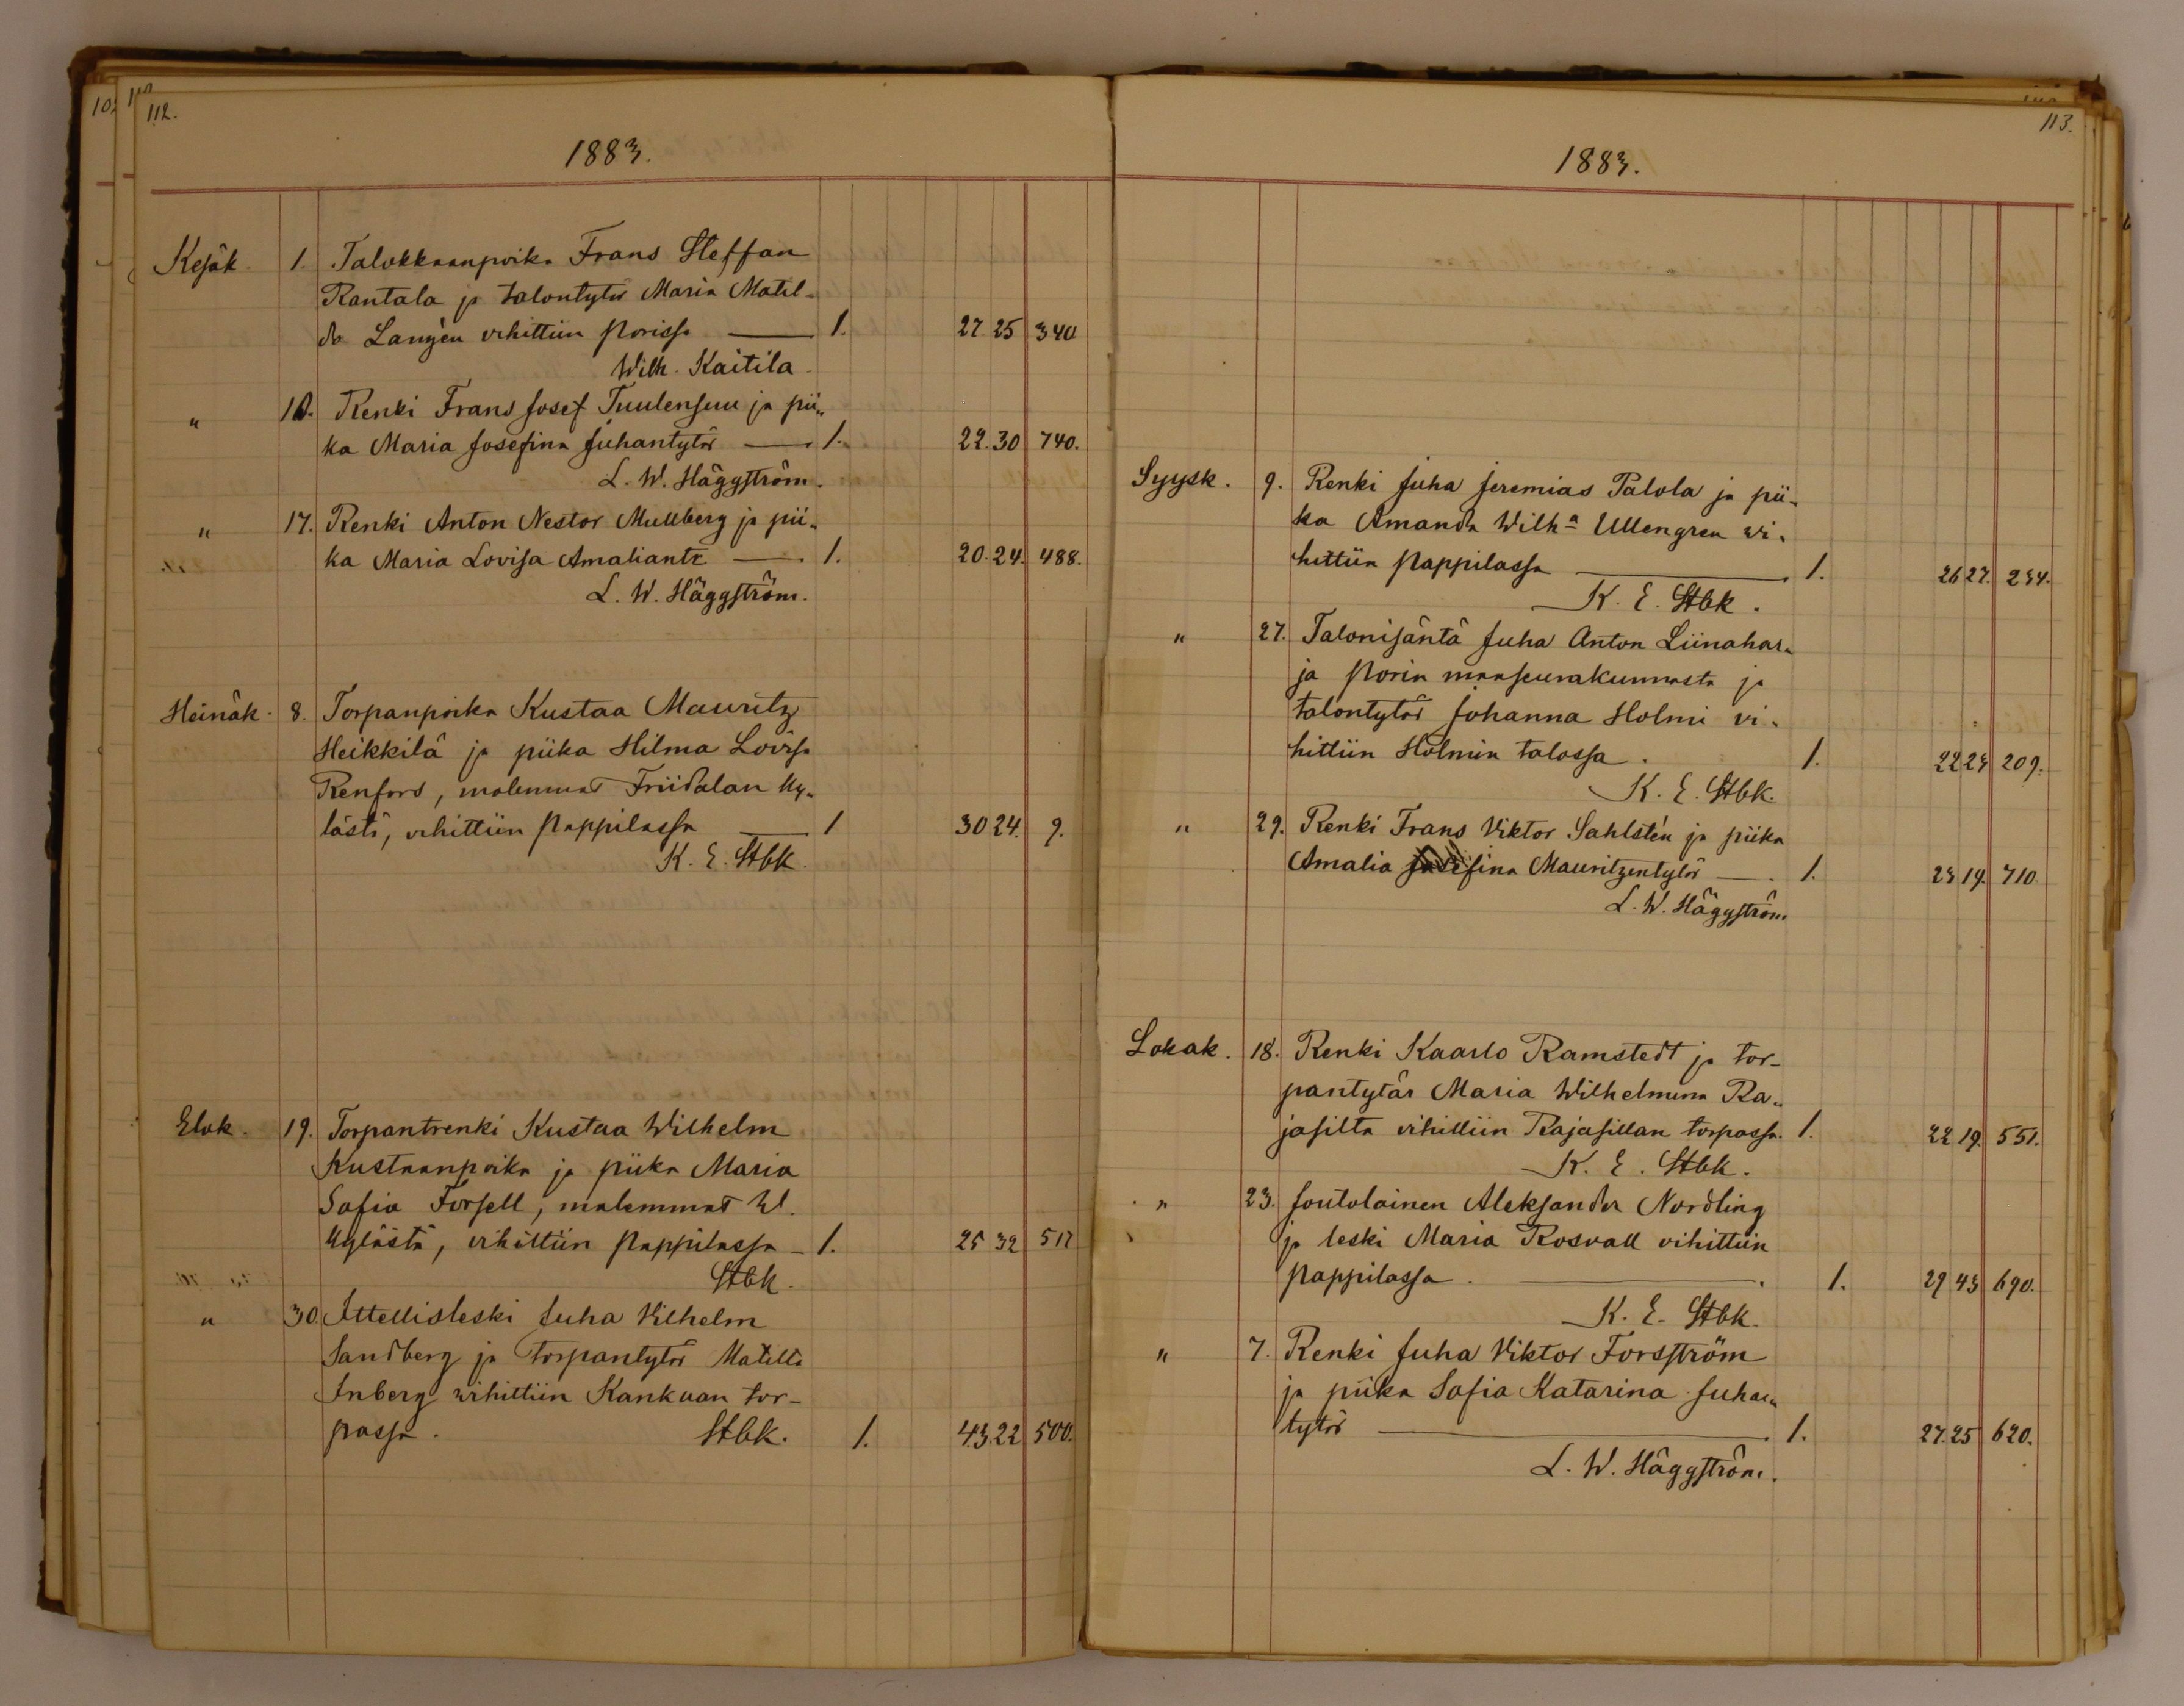 112.
1883.
Kesäk. 1. Talokkaanpoika Frans Steffan
Rantala ja talontytär Maria Matil-
da Langén vihittiin Porissa — 1. 27. 25 340
Wilh. Kaitila.
" 10. Renki Frans Josef Tuulensuu ja pii-
ka Maria Josefina Juhantytär — 1. 22. 30 740.
L. W. Häggström.
" 17. Renki Anton Nestor Mullberg ja pii-
ka Maria Lovisa Amaliantr — 1. 20. 24. 488.
L. W. Häggström.
Heinäk. 8. Torpanpoika Kustaa Mauritz
Heikkilä ja piika Hilma Lovisa
Renfors, molemmat Friidalan ky-
lästä, vihittiin Pappilassa — 1 30 24. 9.
K. E. Stbk.
Elok. 19. Torpantrenki Kustaa Wilhelm
Kustaanpoika ja piika Maria
Sofia Forsell, molemmat Ul.
kylästä, vihittiin Pappilassa — 1. 25 32 517
Stbk.
" 30. Ittellisleski Juha Vilhelm
Sandberg ja torpantytär Matilta
Inberg wihittiin Kankuan tor-
passa. Stbk. 1. 43. 22 500.
113.
1883.
Syysk. 9. Renki Juha Jeremias Palola ja pii-
ka Amanda Wilhª Ullengren wi-
hittiin Pappilassa — 1. 26 27. 234.
K. E. Stbk.
" 27. Talonisäntä Juha Anton Liinahar-
ja Porin maaseurakunnasta ja
talontytär Johanna Holmi vi-
hittiin Holmin talossa. 1. 22 23 209.
K. E. Stbk.
" 29. Renki Frans Viktor Sahlstén ja piika
Amalia Josefina Mauritzentytär — 1. 23 19. 710.
L. W. Häggström
Lokak. 18. Renki Kaarlo Ramstedt ja tor-
pantytär Maria Wilhelmina Ra-
jasilta vihittiin Rajasillan torpassa. 1. 22 19. 551.
K. E. Stbk.
" 23. Joutolainen Aleksander Nordling
ja leski Maria Rosvall vihittiin
Pappilassa. — 1. 29 43 690.
K. E. Stbk.
" 7. Renki Juha Viktor Forsström
ja piika Sofia Katarina Juhan-
tytär — 1. 27. 25 620.
L. W. Häggström.